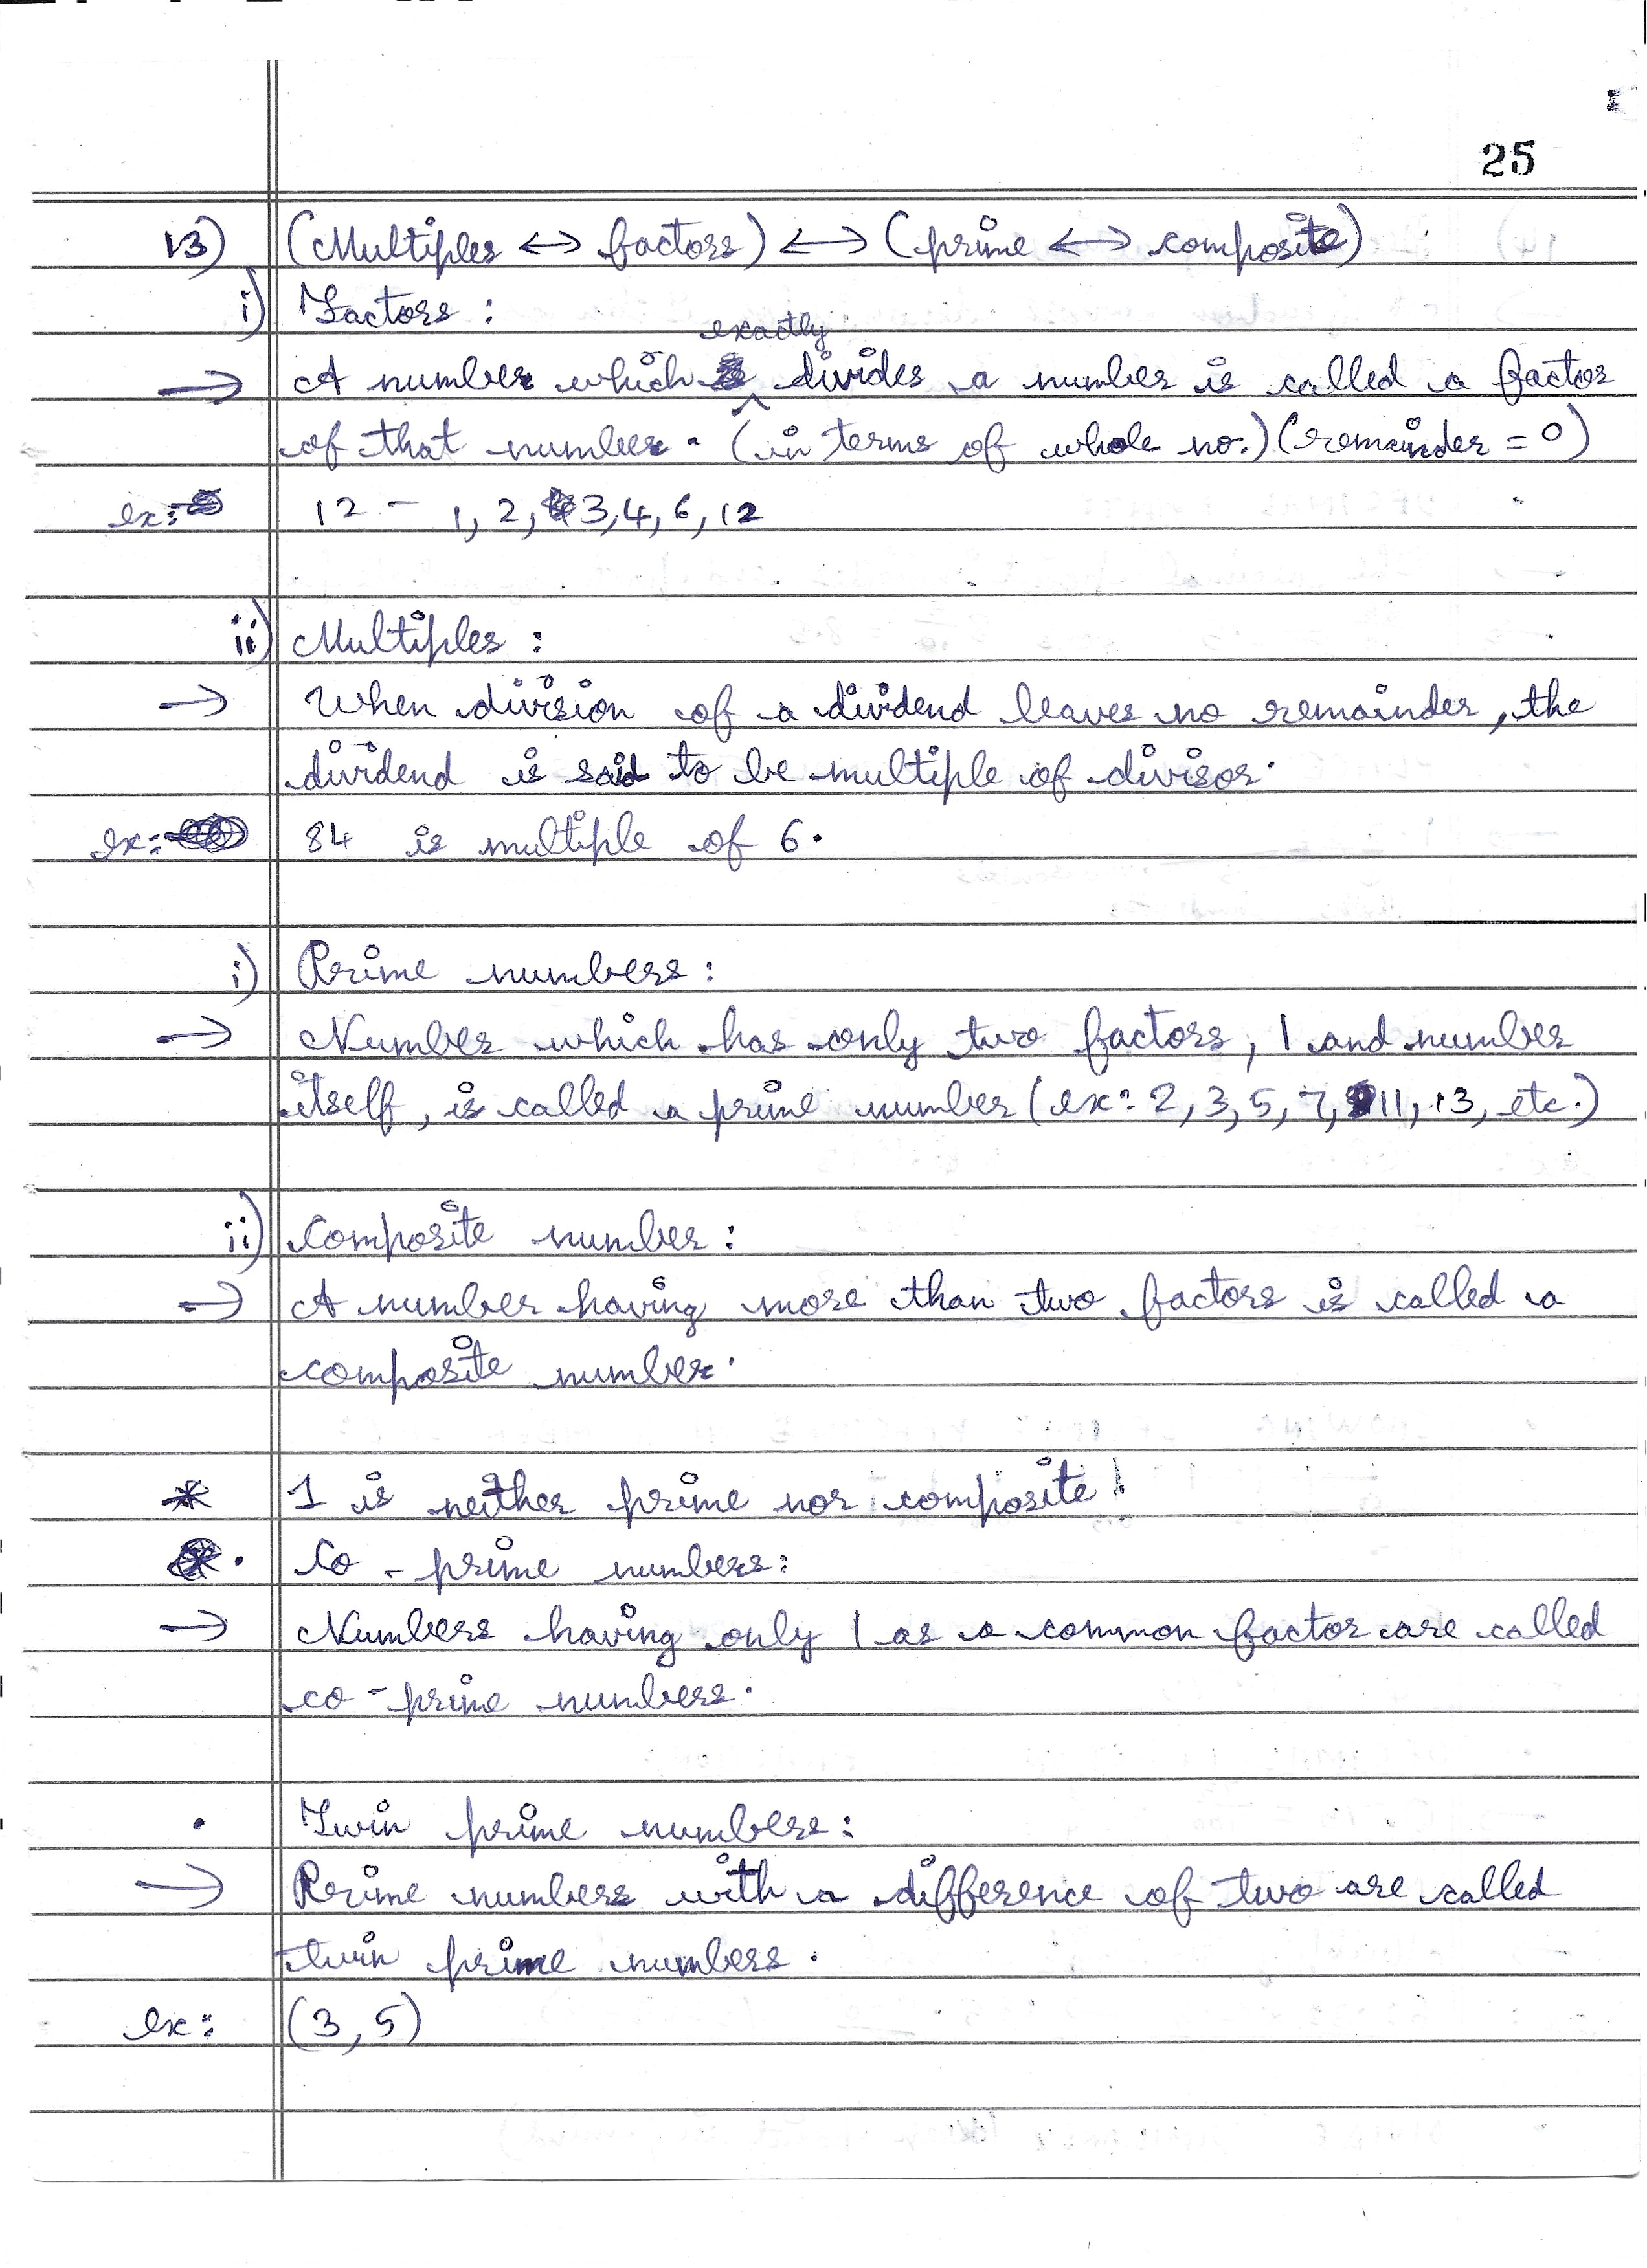 25
13) (Multiples ↔ factors) ↔ (prime ↔ composite)
i) Factors :
exactly
→ A number which divides a number is called a factor
of that number. (in terms of whole no.) (remainder = 0)
ex: 12 - 1, 2, 3, 4, 6, 12
ii) Multiples :
→ When division of a dividend leaves no remainder, the
dividend is said to be multiple of divisor.
ex: 84 is multiple of 6.
i) Prime numbers :
→ Number which has only two factors, 1 and number
itself, is called a prime number (ex: 2, 3, 5, 7, 11, 13, etc.)
ii) Composite number :
→ A number having more than two factors is called a
composite number.
* 1 is neither prime nor composite!
. Co - prime numbers:
→ Numbers having only 1 as a common factor are called
co - prime numbers.
. Twin prime numbers :
→ Prime numbers with a difference of two are called
twin prime numbers.
ex: (3, 5)